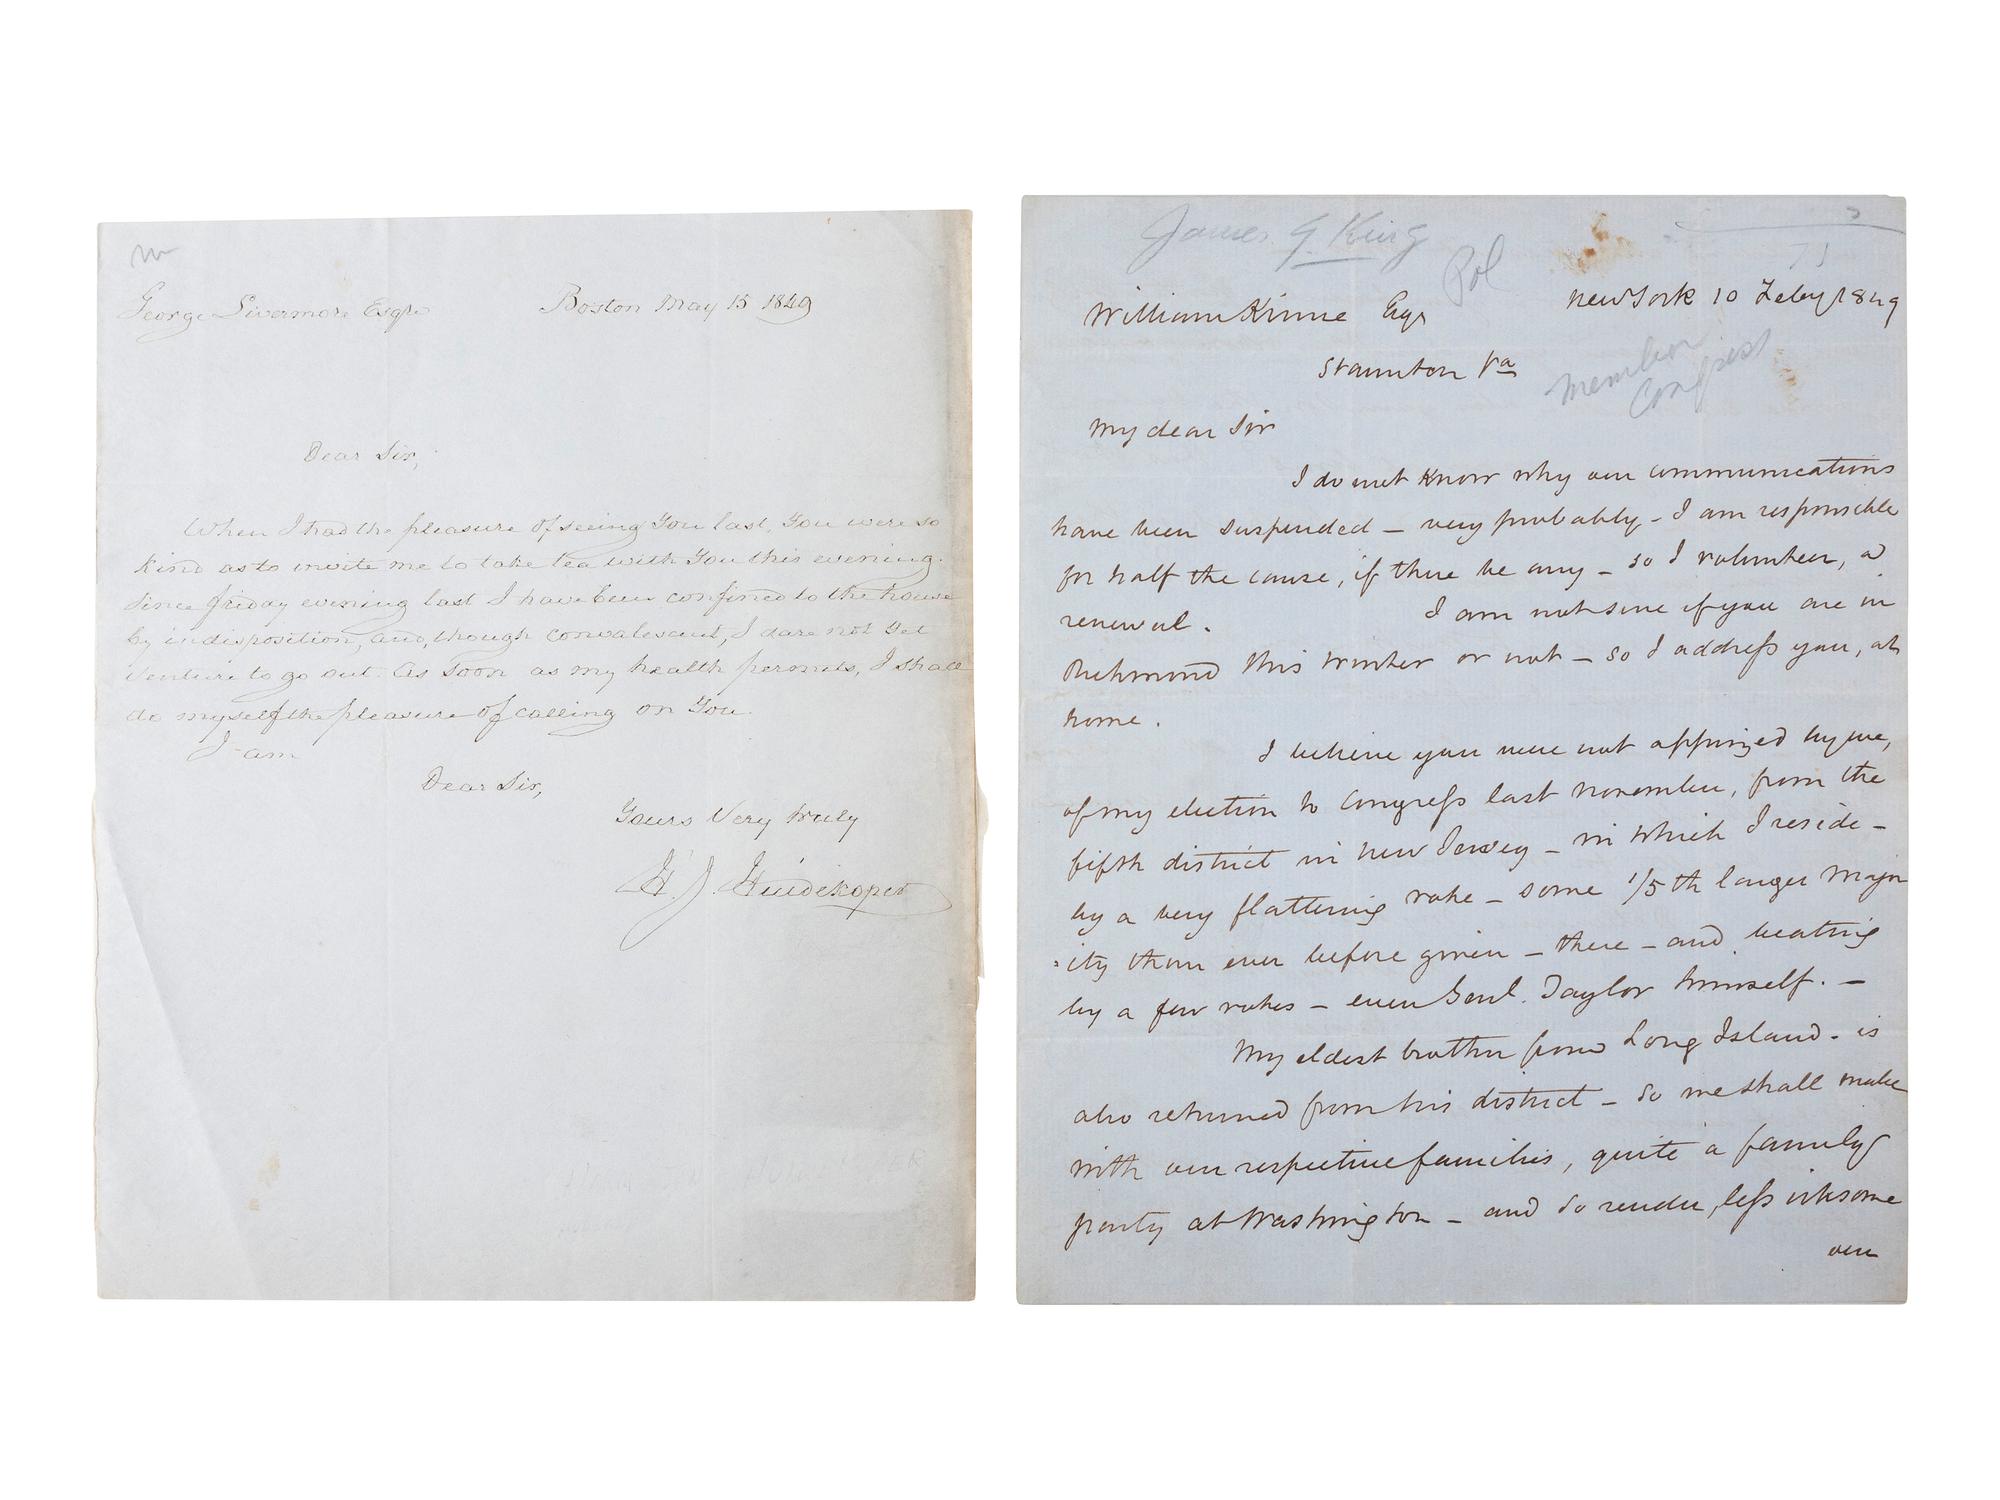 George Livermore Esqre
Boston May 15 1849
Dear Sir,
When I had the pleasure of seeing You last, You were so
kind as to invite me to take tea with You this evening.
Since friday evening last I have been confined to the house
by indisposition, and, though convalescent, I dare not Yet
venture to go out. As soon as my health permits, I shall
do myself the pleasure of calling on You.
I am
Dear Sir,
Yours Very truly
H. J. Huidekoper
James G. King
Pol
71
William Kinne Esqr
New York 10 Feby 1849
Staunton Va
Member
Congress
My dear Sir
I do not know why our communications
have been suspended – very probably – I am responsible
for half the cause, if there be any – so I volunteer, a
renewal. I am not sure if you are in
Richmond this winter or not – so I address you, at
home.
I believe you were not apprized by me,
of my election to Congress last november, from the
fifth district in New Jersey – in which I reside –
by a very flattering vote – some 1/5th larger major
:ity than ever before given – there – and beating
by a few votes – even Genl. Taylor himself. –
My eldest brother from Long Island – is
also returned from his district – so we shall make
with our respective families, quite a family
party at Washington – and so render, less irksome
our